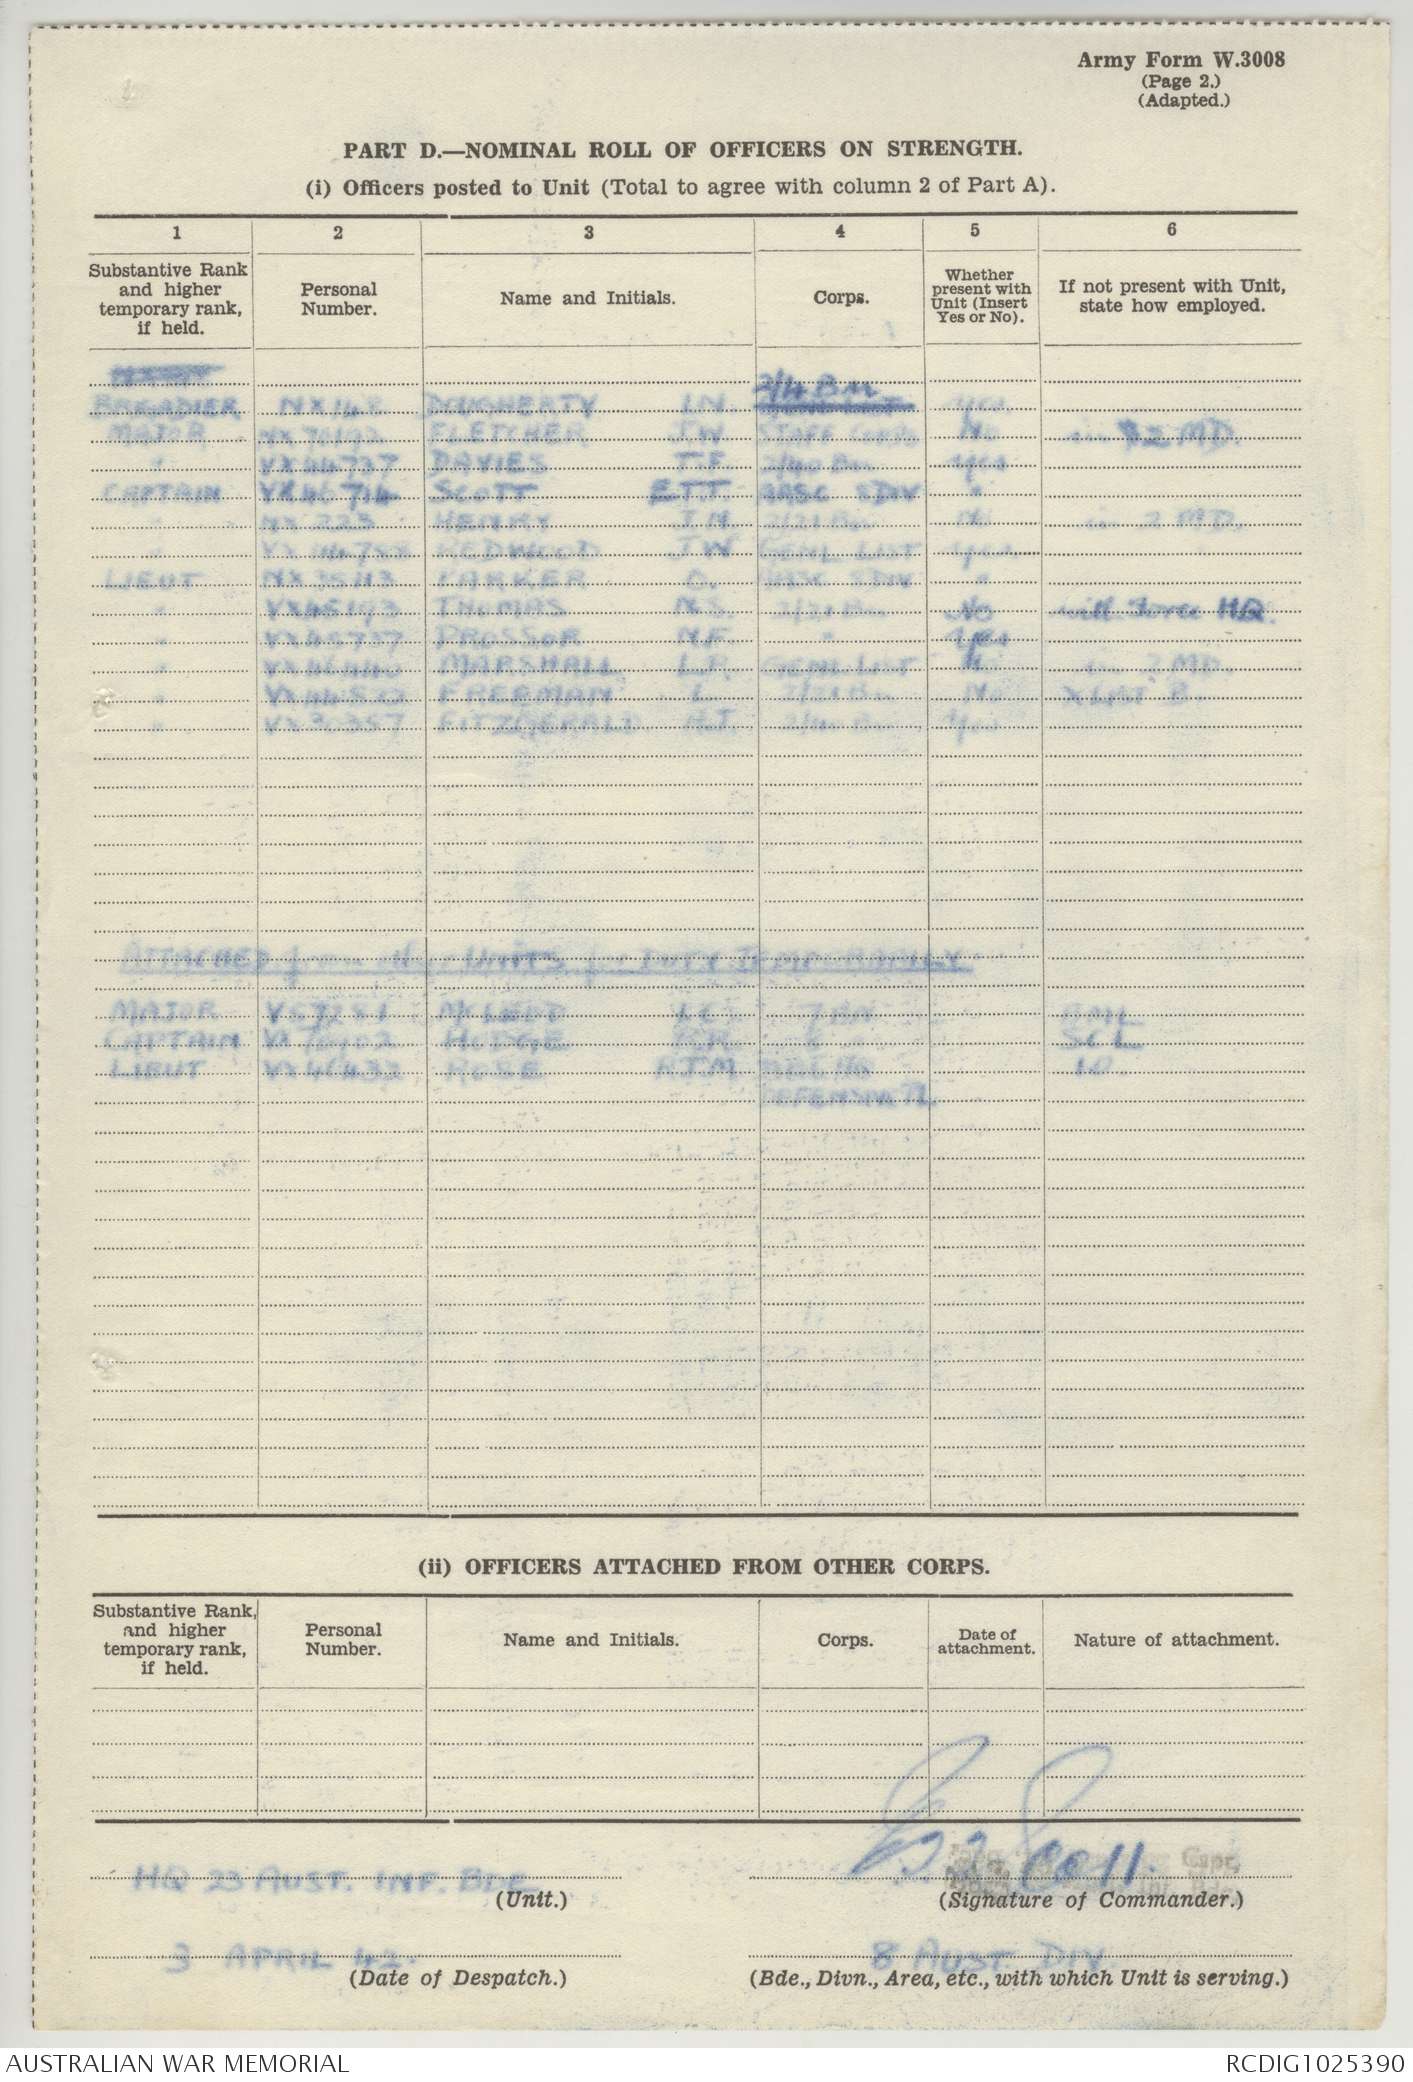 Army Form W.3008
(Page 2.)
(Adapted.)
PART D.—NOMINAL ROLL OF OFFICERS ON STRENGTH.
(i) Officers posted to Unit (Total to agree with column 2 of Part A).
1 2 3 4 5 6
Substantive Rank and higher temporary rank, if held. Personal Number. Name and Initials. Corps. Whether present with Unit (Insert Yes or No). If not present with Unit, state how employed.
2/4 Bn
BRIGADIER NX148 DOUGHERTY I.N. Yes
MAJOR NX70192 FLETCHER J.W. STAFF CORPS No in 2 MD.
" VX44737 DAVIES T.F. 2/40 Bn Yes
CAPTAIN SCOTT E.T.T. AASC 8 DIV "
" NX 223 HENRY J.N. 2/21 Bn No in 2 MD.
" REDWOOD J.W. GENL LIST Yes
LIEUT PARKER AASC 8 DIV "
" VX45193 THOMAS N.S. 2/21 Bn No with Force HQ.
" PROSSOR N.F. " Yes
" MARSHALL L.P. GENL LIST No in 2 MD
" FREEMAN L. 2/21 Bn No X LIST B.
" VX30357 FITZGERALD H.J. 2/40 Bn Yes
ATTACHED from other UNITS for DUTY TEMPORARILY
MAJOR McLEOD 7 BN BML
CAPTAIN HODGE " SCL
LIEUT VX46432 ROSE R.J.M. BDE HQ IO.
DEFENCE PL
(ii) OFFICERS ATTACHED FROM OTHER CORPS.
Substantive Rank, and higher temporary rank, if held. Personal Number. Name and Initials. Corps. Date of attachment. Nature of attachment.
Capt,
HQ 23 AUST. INF. BDE
(Unit.) (Signature of Commander.)
3 APRIL 42. 8 AUST. DIV.
(Date of Despatch.) (Bde., Divn., Area, etc., with which Unit is serving.)
AUSTRALIAN WAR MEMORIAL RCDIG1025390